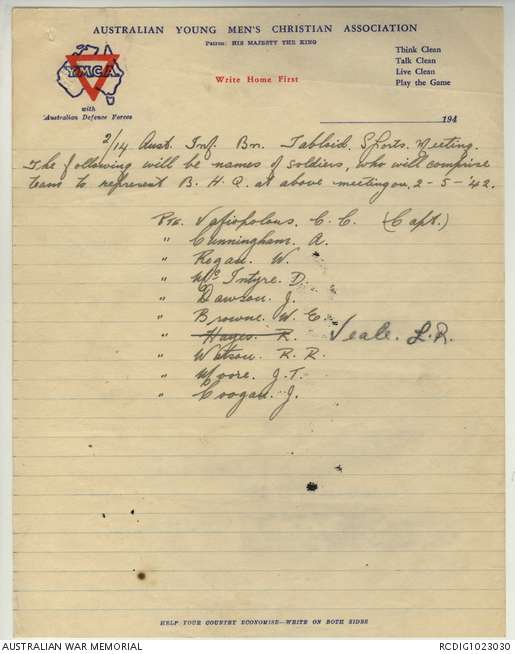 AUSTRALIAN YOUNG MEN'S CHRISTIAN ASSOCIATION
Patron: HIS MAJESTY THE KING
Think Clean
Talk Clean
Live Clean
Play the Game
YMCA
Write Home First
with
Australian Defence Forces
194
2/14 Aust. Inf. Bn. Tabloid Sports Meeting.
The following will be names of soldiers, who will comprise
team to represent B.H.Q. at above meeting on 2-5-'42.
Pte. Vafiopolous. C. C. (Capt.)
" Cunningham. A.
" Rogan. W.
" McIntyre. D.
" Dawson. J.
" Browne. W. E.
" Hayes. R. Veale. L.R.
" Watson. R. R.
" Moore. J. T.
" Coogan. J.
HELP YOUR COUNTRY ECONOMISE—WRITE ON BOTH SIDES
AUSTRALIAN WAR MEMORIAL
RCDIG1023030